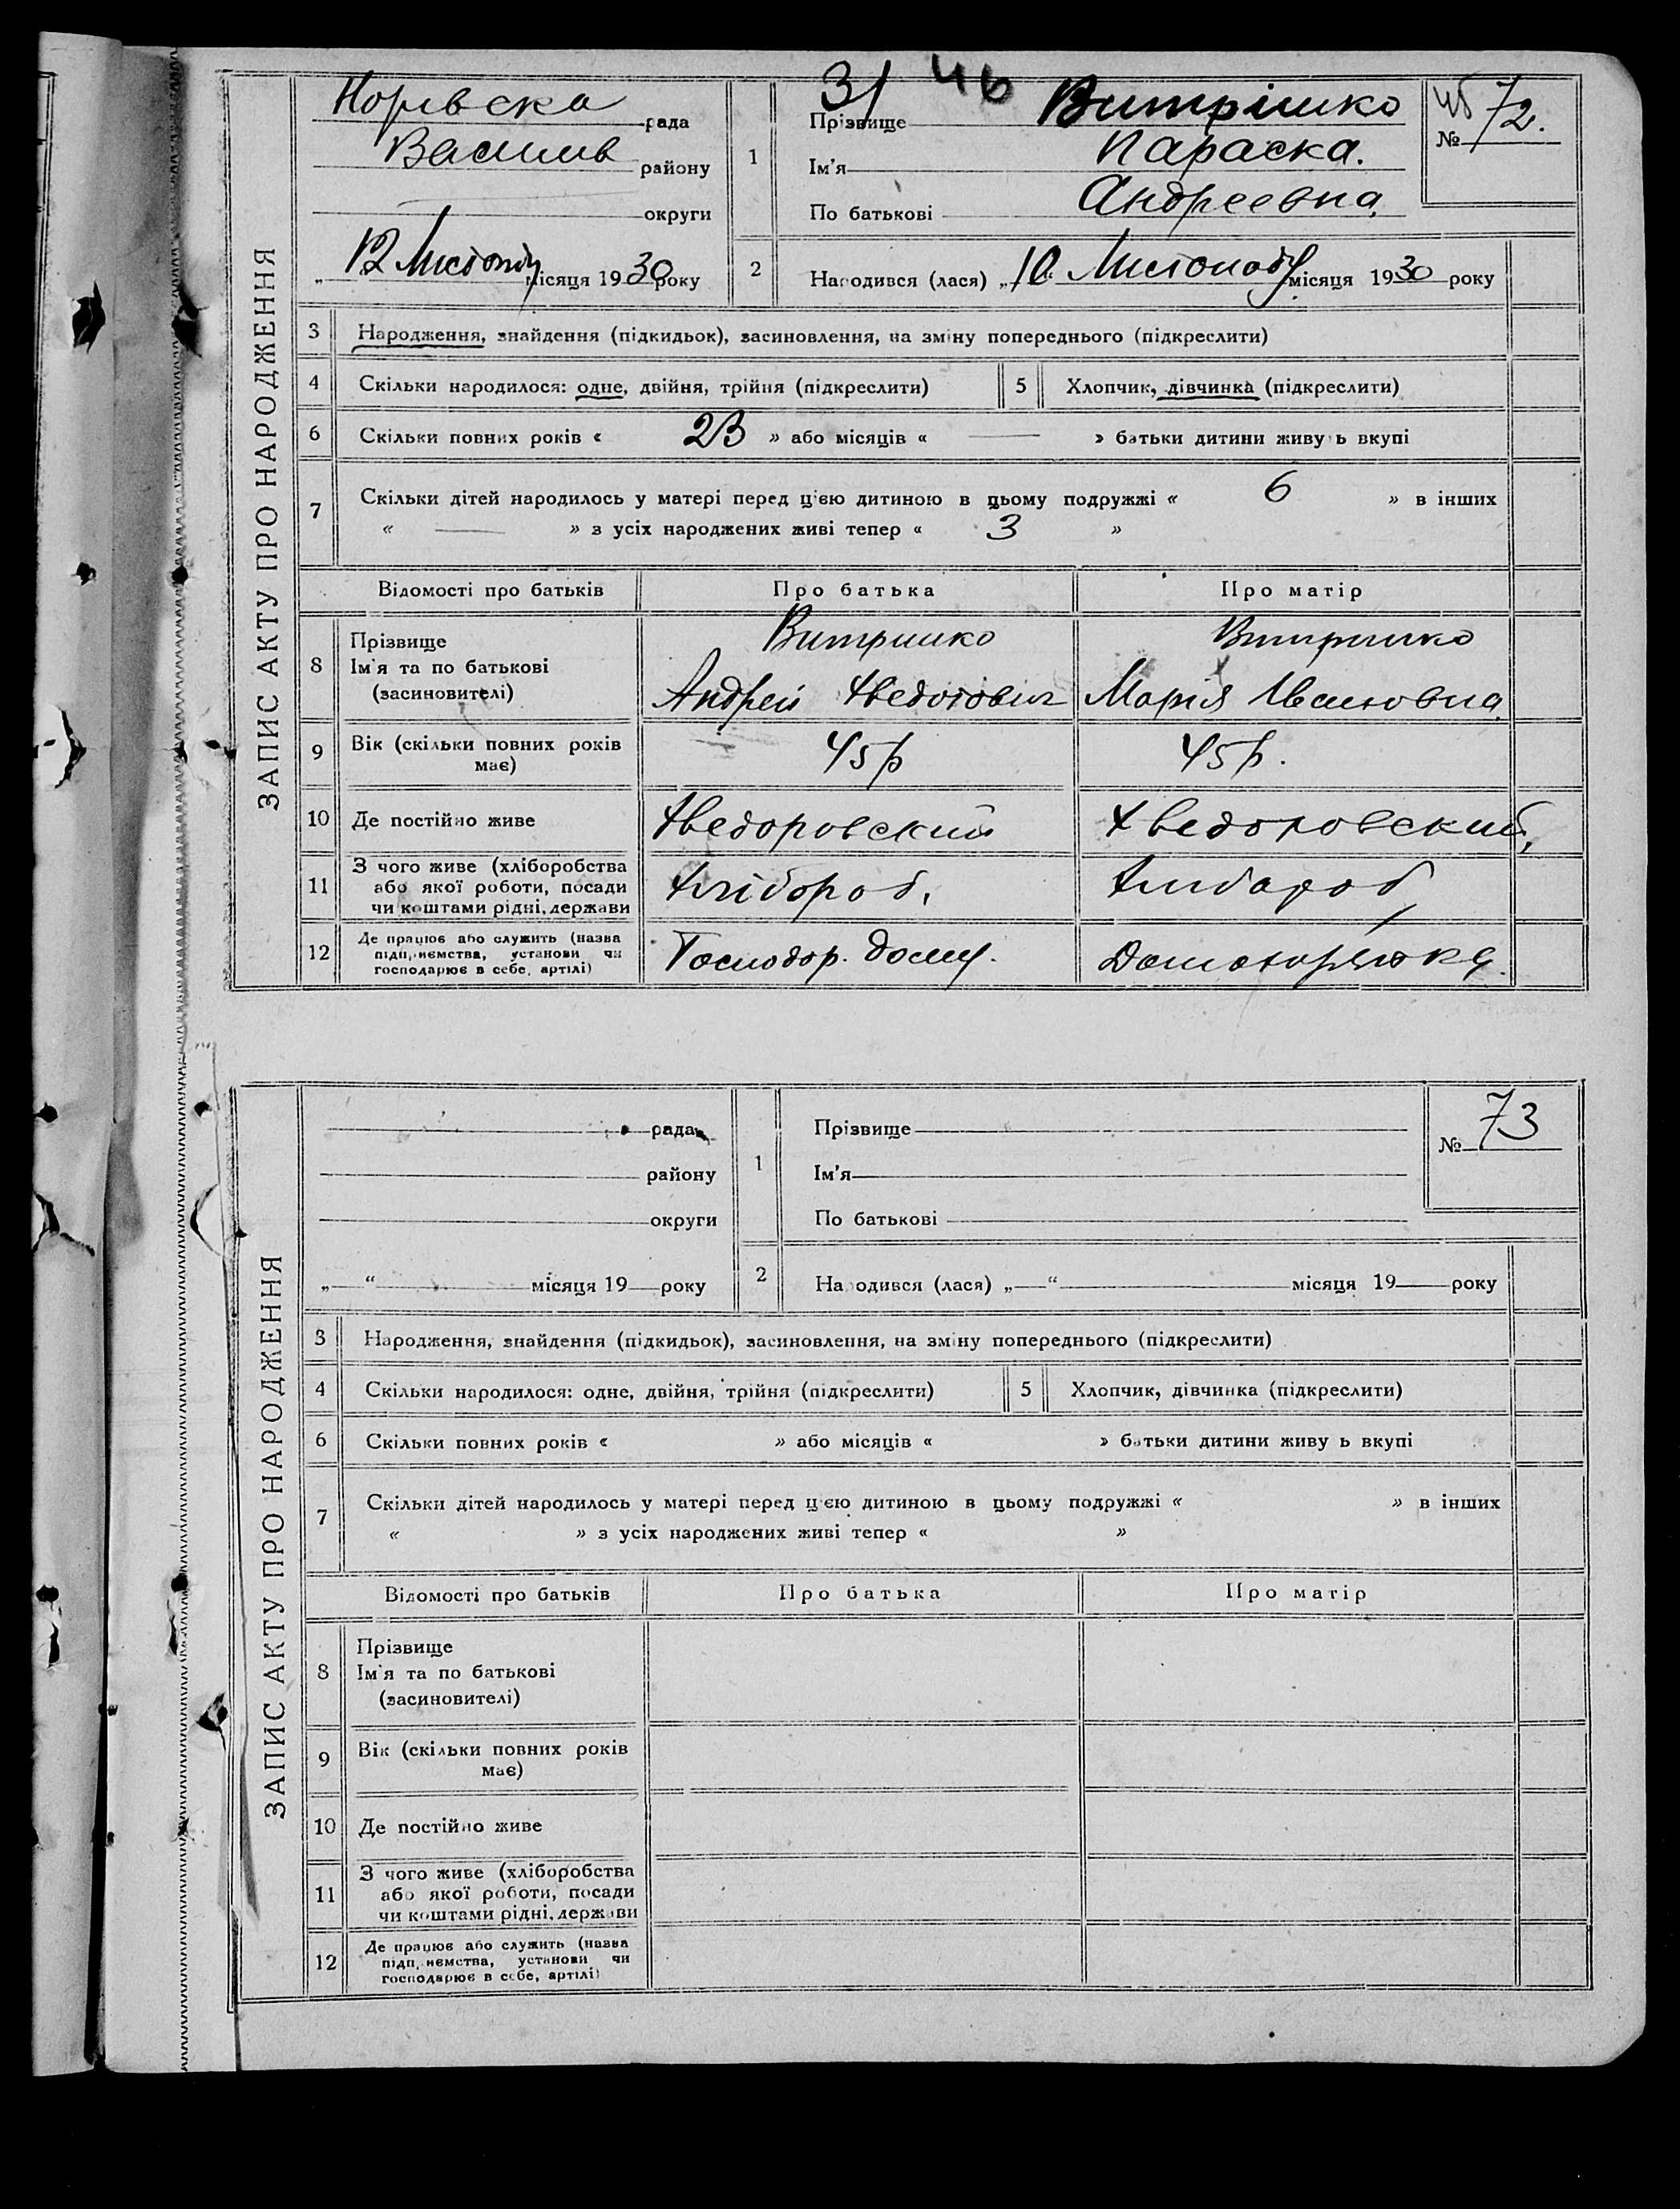 ЗАПИС АКТУ ПРО НАРОДЖЕННЯ
рада
Василів району
округи
12 Листопаду місяця 1930 року
31 46
1 Прізвище Витрішко
Ім'я Параска.
По батькові Андреевна
№ 72.
2 Народився (лася) „10" Листопаду місяця 1930 року
3 Народження, знайдення (підкидьок), засиновлення, на зміну попереднього (підкреслити)
4 Скільки народилося: одне, двійня, трійня (підкреслити) 5 Хлопчик, дівчинка (підкреслити)
6 Скільки повних років « 23 » або місяців « — » батьки дитини живуть вкупі
7 Скільки дітей народилось у матері перед цією дитиною в цьому подружжі « 6 » в інших
« — » з усіх народжених живі тепер « 3 »
Відомості про батьків Про батька Про матір
8 Прізвище
Ім'я та по батькові
(засиновителі)
Витришко
Андрей Хведотович
Витришко
Марія Ивановна
9 Вік (скільки повних років
має)
45 р 45 р.
10 Де постійно живе Хведоровский Хведоровский
11 З чого живе (хліборобства
або якої роботи, посади
чи коштами рідні, держави
Хлібороб. Хлибороб
12 Де працює або служить (назва
підприємства, установи чи
господарює в себе, артілі)
Господор. дому. Домохозяйка.
ЗАПИС АКТУ ПРО НАРОДЖЕННЯ
рада
району
округи
„ — “ місяця 19 року
1 Прізвище
Ім'я
По батькові
№ 73
2 Народився (лася) „ — “ місяця 19 року
3 Народження, знайдення (підкидьок), засиновлення, на зміну попереднього (підкреслити)
4 Скільки народилося: одне, двійня, трійня (підкреслити) 5 Хлопчик, дівчинка (підкреслити)
6 Скільки повних років « » або місяців « » батьки дитини живуть вкупі
7 Скільки дітей народилось у матері перед цією дитиною в цьому подружжі « » в інших
« » з усіх народжених живі тепер « »
Відомості про батьків Про батька Про матір
8 Прізвище
Ім'я та по батькові
(засиновителі)
9 Вік (скільки повних років
має)
10 Де постійно живе
11 З чого живе (хліборобства
або якої роботи, посади
чи коштами рідні, держави
12 Де працює або служить (назва
підприємства, установи чи
господарює в себе, артілі)